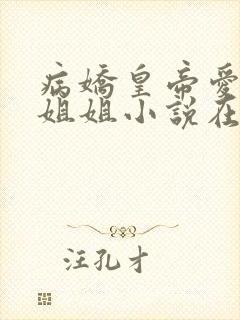 病嬌皇帝愛
姐姐小說在
汪孔才